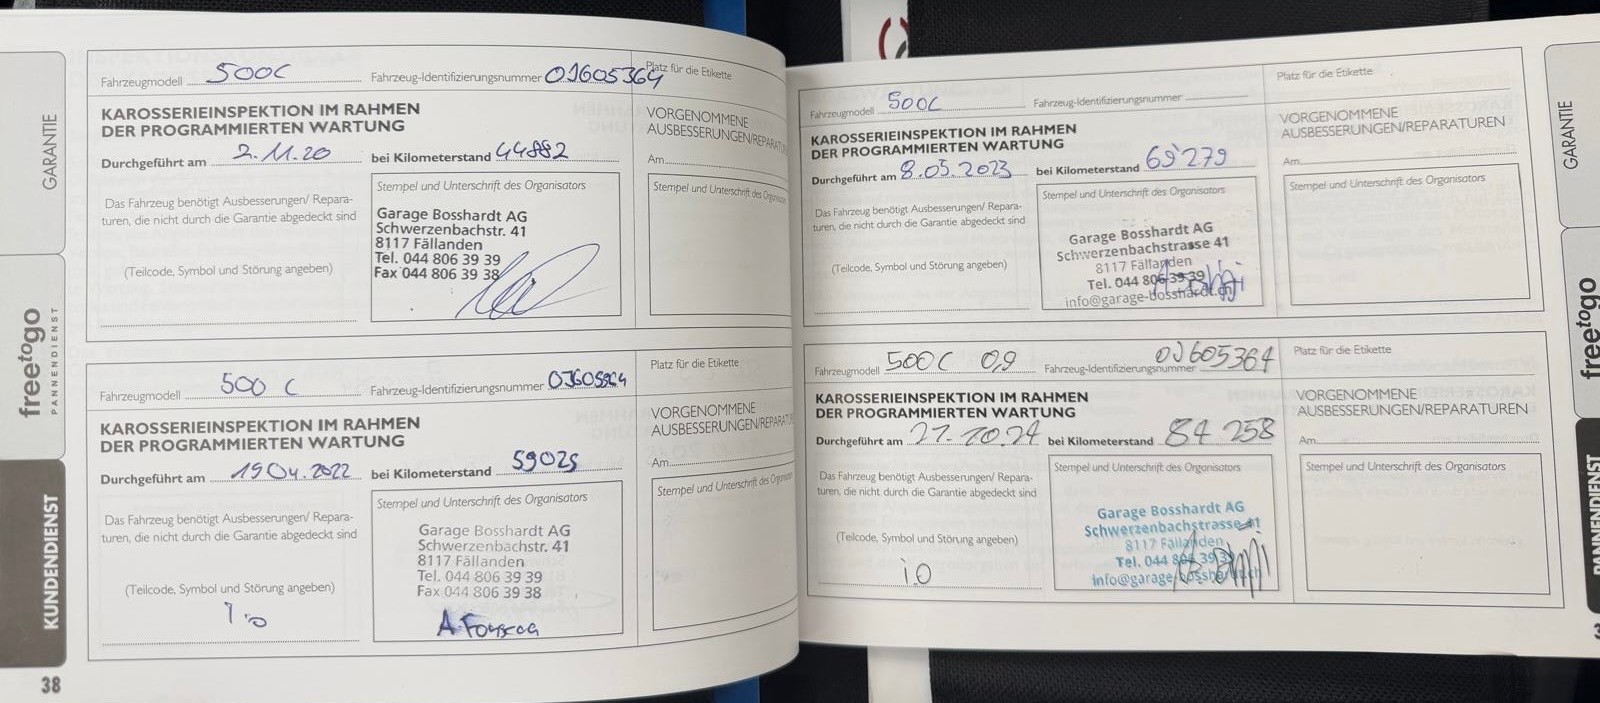 GARANTIE
freetogo
PANNENDIENST
KUNDENDIENST
38
Fahrzeugmodell 500C Fahrzeug-Identifizierungsnummer 0J605364
Platz für die Etikette
KAROSSERIEINSPEKTION IM RAHMEN
DER PROGRAMMIERTEN WARTUNG
Durchgeführt am 2.11.20 bei Kilometerstand 44882
Das Fahrzeug benötigt Ausbesserungen/ Repara-
turen, die nicht durch die Garantie abgedeckt sind
(Teilcode, Symbol und Störung angeben)
Stempel und Unterschrift des Organisators
Garage Bosshardt AG
Schwerzenbachstr. 41
8117 Fällanden
Tel. 044 806 39 39
Fax 044 806 39 38
VORGENOMMENE
AUSBESSERUNGEN/REPARATU
Am
Stempel und Unterschrift des Organisa
Fahrzeugmodell 500 C Fahrzeug-Identifizierungsnummer
Platz für die Etikette
KAROSSERIEINSPEKTION IM RAHMEN
DER PROGRAMMIERTEN WARTUNG
Durchgeführt am 19.04.2022 bei Kilometerstand 59025
Das Fahrzeug benötigt Ausbesserungen/ Repara-
turen, die nicht durch die Garantie abgedeckt sind
(Teilcode, Symbol und Störung angeben)
i.o
Stempel und Unterschrift des Organisators
Garage Bosshardt AG
Schwerzenbachstr. 41
8117 Fällanden
Tel. 044 806 39 39
Fax 044 806 39 38
A. Fonseca
VORGENOMMENE
AUSBESSERUNGEN/REPARATU
Am
Stempel und Unterschrift des Organisa
Fahrzeugmodell 500C Fahrzeug-Identifizierungsnummer
Platz für die Etikette
KAROSSERIEINSPEKTION IM RAHMEN
DER PROGRAMMIERTEN WARTUNG
Durchgeführt am 8.05.2023 bei Kilometerstand 69'279
Das Fahrzeug benötigt Ausbesserungen/ Repara-
turen, die nicht durch die Garantie abgedeckt sind
(Teilcode, Symbol und Störung angeben)
Stempel und Unterschrift des Organisators
Garage Bosshardt AG
Schwerzenbachstrasse 41
8117 Fällanden
Tel. 044 806 39 39
info@garage-bosshardt.ch
VORGENOMMENE
AUSBESSERUNGEN/REPARATUREN
Am
Stempel und Unterschrift des Organisators
Fahrzeugmodell 500C 0,9 Fahrzeug-Identifizierungsnummer 0J605364
Platz für die Etikette
KAROSSERIEINSPEKTION IM RAHMEN
DER PROGRAMMIERTEN WARTUNG
Durchgeführt am 21.10.24 bei Kilometerstand 84 258
Das Fahrzeug benötigt Ausbesserungen/ Repara-
turen, die nicht durch die Garantie abgedeckt sind
(Teilcode, Symbol und Störung angeben)
i.O
Stempel und Unterschrift des Organisators
Garage Bosshardt AG
Schwerzenbachstrasse 41
8117 Fällanden
Tel. 044 806 39 3
info@garage-bosshardt.ch
VORGENOMMENE
AUSBESSERUNGEN/REPARATUREN
Am
Stempel und Unterschrift des Organisators
GARANTIE
freetogo
PANNENDIENST